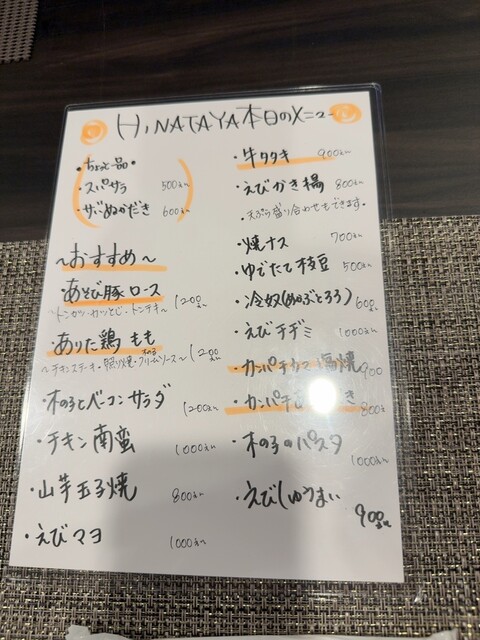 HINATAYA本日のメニュー
・ちょっと一品・
・スパサラ 500えん
・サバぬかだき 600えん
〜おすすめ〜
あそび豚ロース 1200えん
〜トンカツ・カツとじ・トンテキ〜
ありた鶏もも 1200えん
〜チキンステーキ・照り焼・クリームソース〜
・木の子とベーコンサラダ 1200えん
・チキン南蛮 1000えん
・山芋玉子焼 800えん
・えびマヨ 1000えん
・牛タタキ 900えん
・えびかき揚 800えん
・天ぷら盛り合わせもできます・
・焼ナス 700えん
・ゆでたて枝豆 500えん
・冷奴(めかぶとろろ) 600えん
・えびチヂミ 1000えん
・カンパチカマ塩焼 900
・カンパチ き 800えん
・木の子のパスタ 1000えん
・えびしゅうまい 900えん